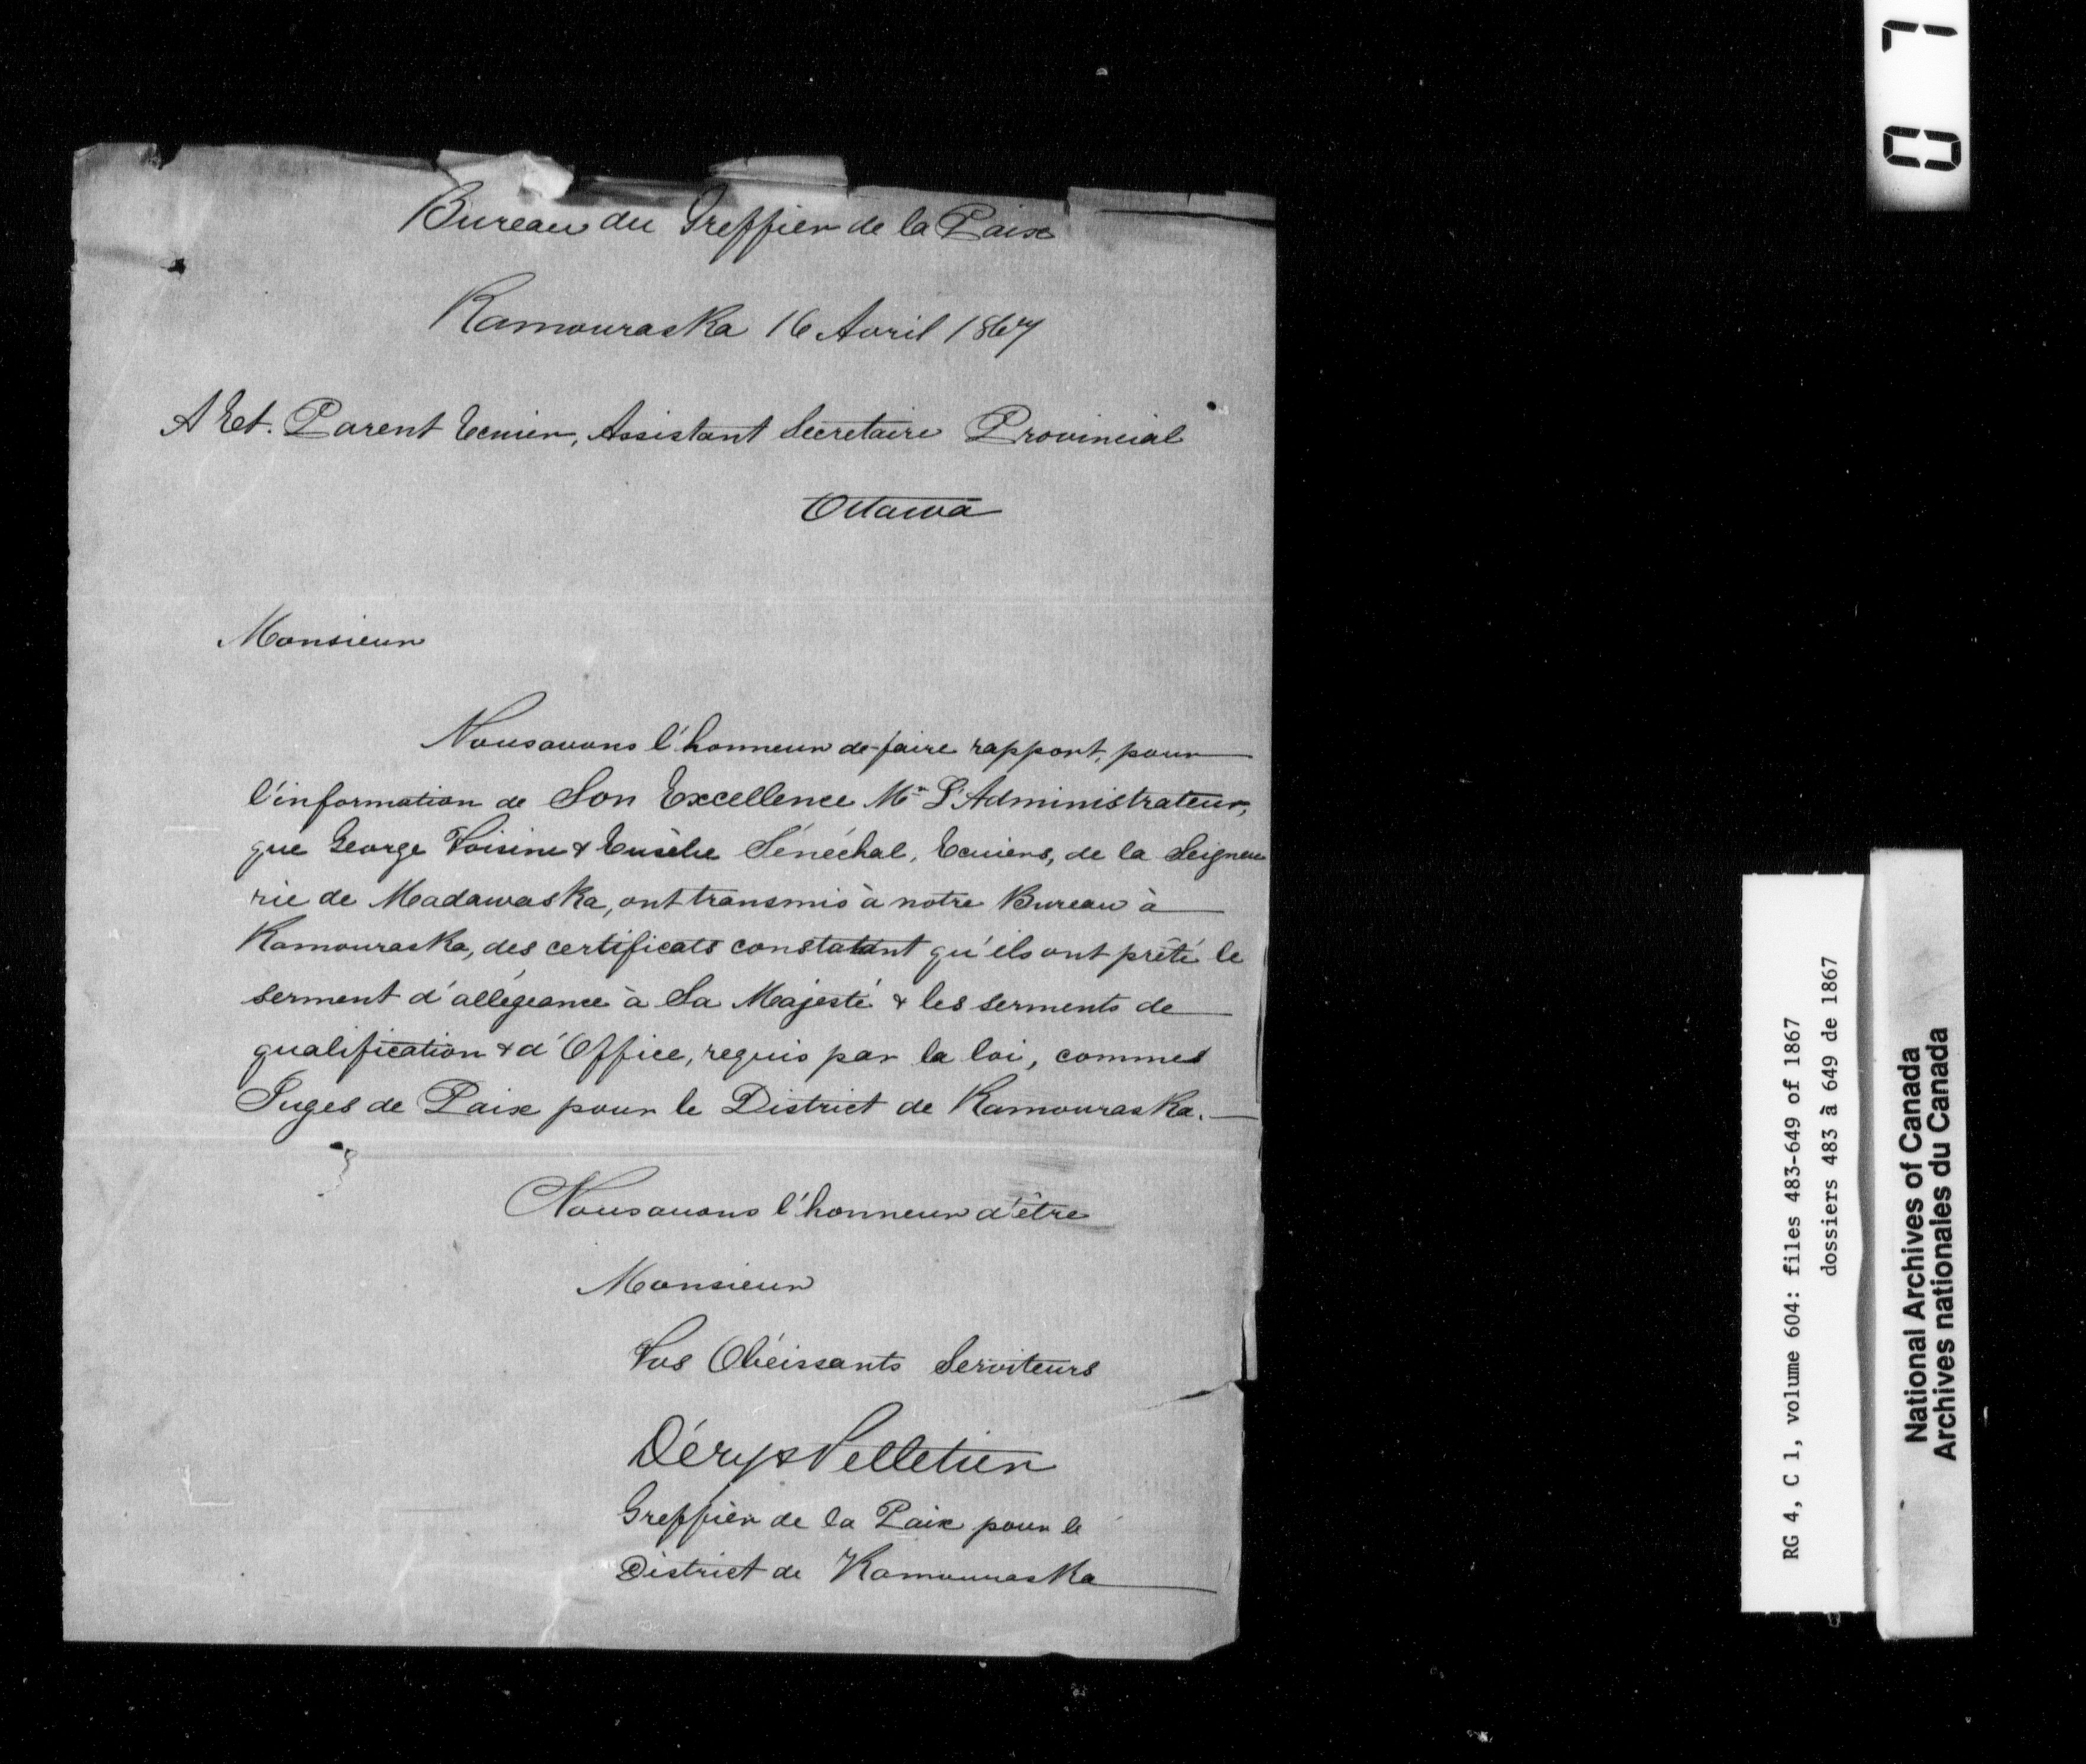 Bureau du Greffier de la Paix
Kamouraska 16 Avril 1867
A Et. Parent Ecuier, Assistant Secretaire Provincial
Ottawa
Monsieur
Nous avons l'honneur de faire rapport, pour
l'information de Son Excellence Mr. L'Administrateur,
que George Voisine & Eusèbe Sénéchal, Ecuiers, de la Seigneu
rie de Madawaska, ont transmis à notre Bureau à
Kamouraska, des certificats constatant qu'ils ont prêté le
serment d'allégeance à Sa Majesté & les serments de
qualification & d'Office, requis par la loi, commes
Juges de Paix pour le District de Kamouraska.
Nous avons l'honneur d'être
Monsieur
Vos Obéissants Serviteurs
Déry & Pelletier
Greffier de la Paix pour le
District de Kamouraska
RG 4, C 1, volume 604: files 483-649 of 1867
dossiers 483 à 649 de 1867
National Archives of Canada
Archives nationales du Canada
07